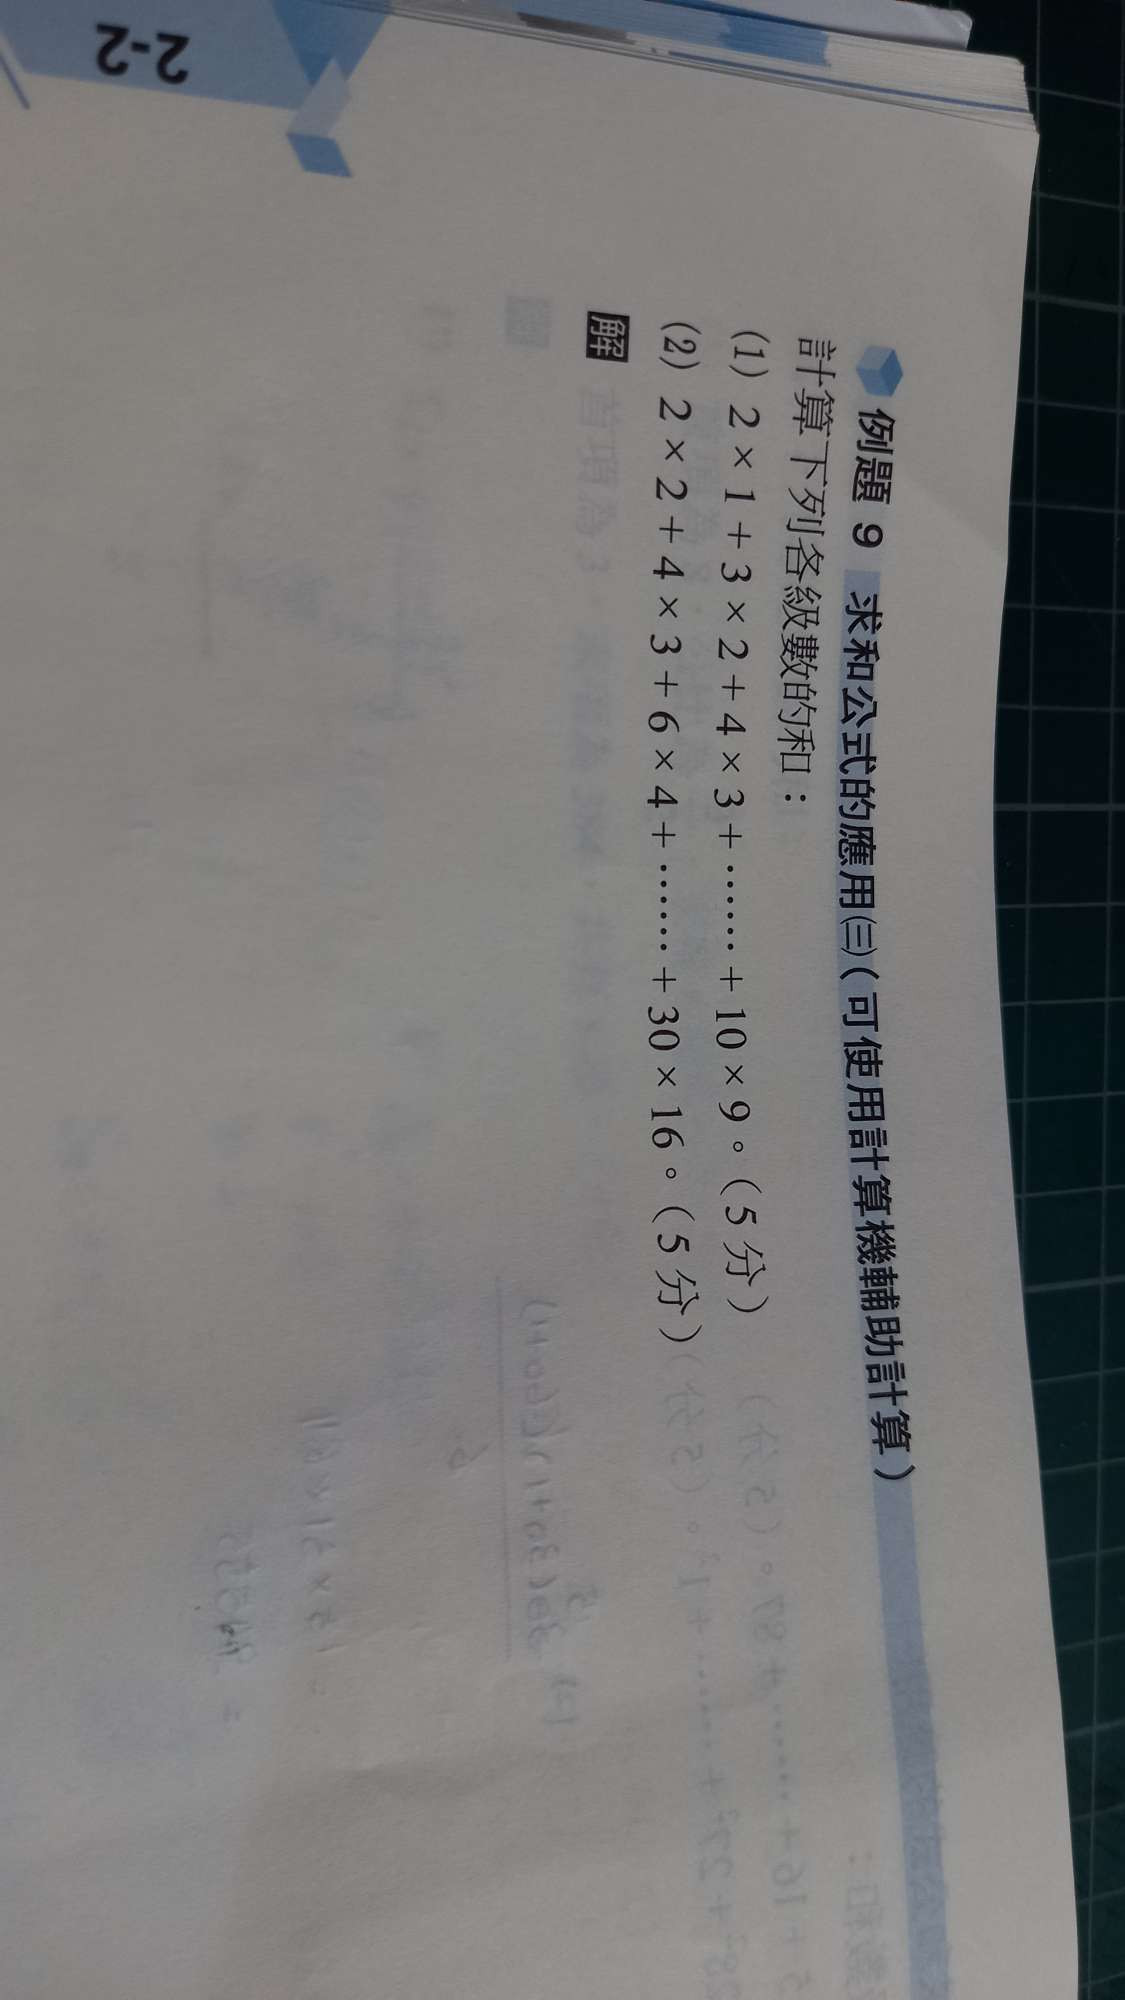 例題 9 求和公式的應用㈢(可使用計算機輔助計算)
計算下列各級數的和：
(1) 2×1+3×2+4×3+……+10×9。(5分)
(2) 2×2+4×3+6×4+……+30×16。(5分)
解
2-2